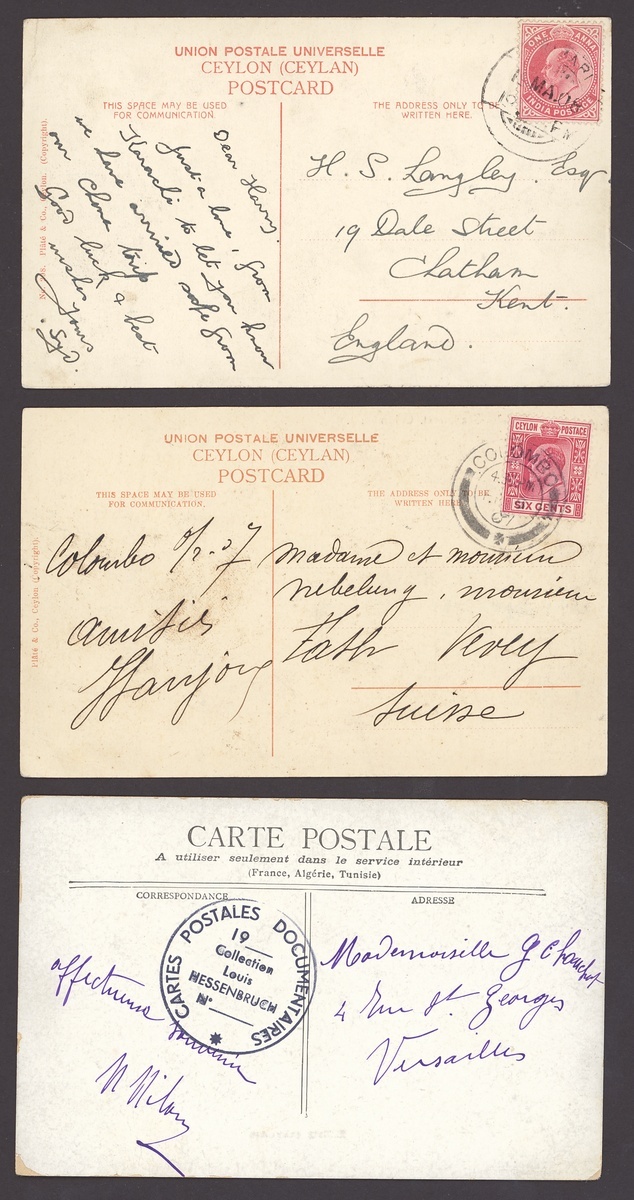 UNION POSTALE UNIVERSELLE
CEYLON (CEYLAN)
POSTCARD
THIS SPACE MAY BE USED
FOR COMMUNICATION.
THE ADDRESS ONLY TO BE
WRITTEN HERE.
Plâté & Co., Ceylon. (Copyright).
Dear Harry.
Just a line, from
Karachi to let you know
we have arrived safe from
our trip
Good luck & best
wishes
yours
Syd.
ONE ANNA
INDIA POSTAGE
H. S. Langley. Esqr.
19 Dale Street
Chatham
Kent.
England.
UNION POSTALE UNIVERSELLE
CEYLON (CEYLAN)
POSTCARD
THIS SPACE MAY BE USED
FOR COMMUNICATION.
THE ADDRESS ONLY TO BE
WRITTEN HERE.
Plâté & Co., Ceylon (Copyright).
CEYLON POSTAGE
SIX CENTS
COLOMBO
Colombo
amitiés
Madame et monsieur
nebelung, monsieur
Fath Vevey
Suisse
CARTE POSTALE
A utiliser seulement dans le service intérieur
(France, Algérie, Tunisie)
CORRESPONDANCE
ADRESSE
CARTES POSTALES DOCUMENTAIRES
19
Collection
Louis
HESSENBRUCH
N°
affectueux
souvenir
Mademoiselle G
4 Rue St. Georges
Versailles